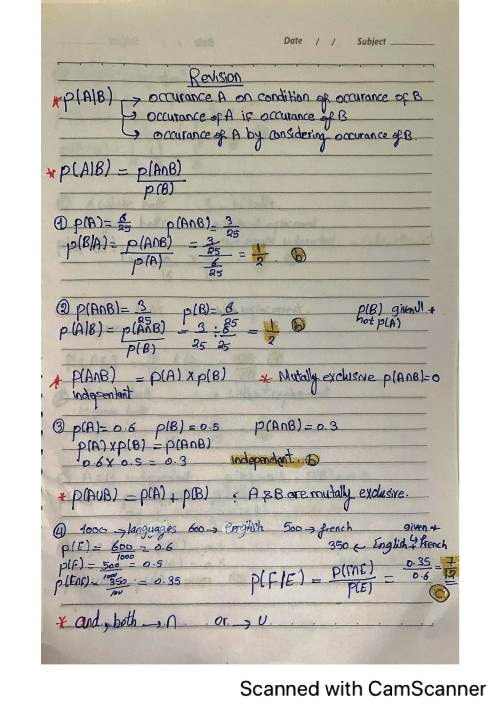 Date / / Subject
Revision
* p(A|B) → occurance A on condition of occurance of B
→ occurance of A if occurance of B
→ occurance of A by considering occurance of B.
* p(A|B) = p(A∩B) / p(B)
① p(A) = 6/25 p(A∩B) = 3/25
p(B/A) = p(A∩B) / p(A) = 3/25 / 6/25 = 1/2 ⓑ
② p(A∩B) = 3/25 p(B) = 6/25 p(B) given!! +
p(A|B) = p(A∩B) / p(B) = 3/25 ÷ 6/25 = 1/2 ⓑ not p(A)
* p(A∩B) = p(A) x p(B) * Mutally exclusive p(A∩B)=0
indepentant
③ p(A) = 0.6 p(B) = 0.5 p(A∩B) = 0.3
p(A) x p(B) = p(A∩B)
0.6 x 0.5 = 0.3 independant. ⓑ
* p(A∪B) = p(A) + p(B) : A & B are mutally exclusive.
④ 1000 → languages 600 → English 500 → french given +
p(E) = 600/1000 = 0.6 350 ← English + french
p(F) = 500/1000 = 0.5
p(E∩F) = 350/100 = 0.35 p(F/E) = p(F∩E) / p(E) = 0.35/0.6 = 7/12
ⓒ
* and, both → ∩ or → ∪
Scanned with CamScanner